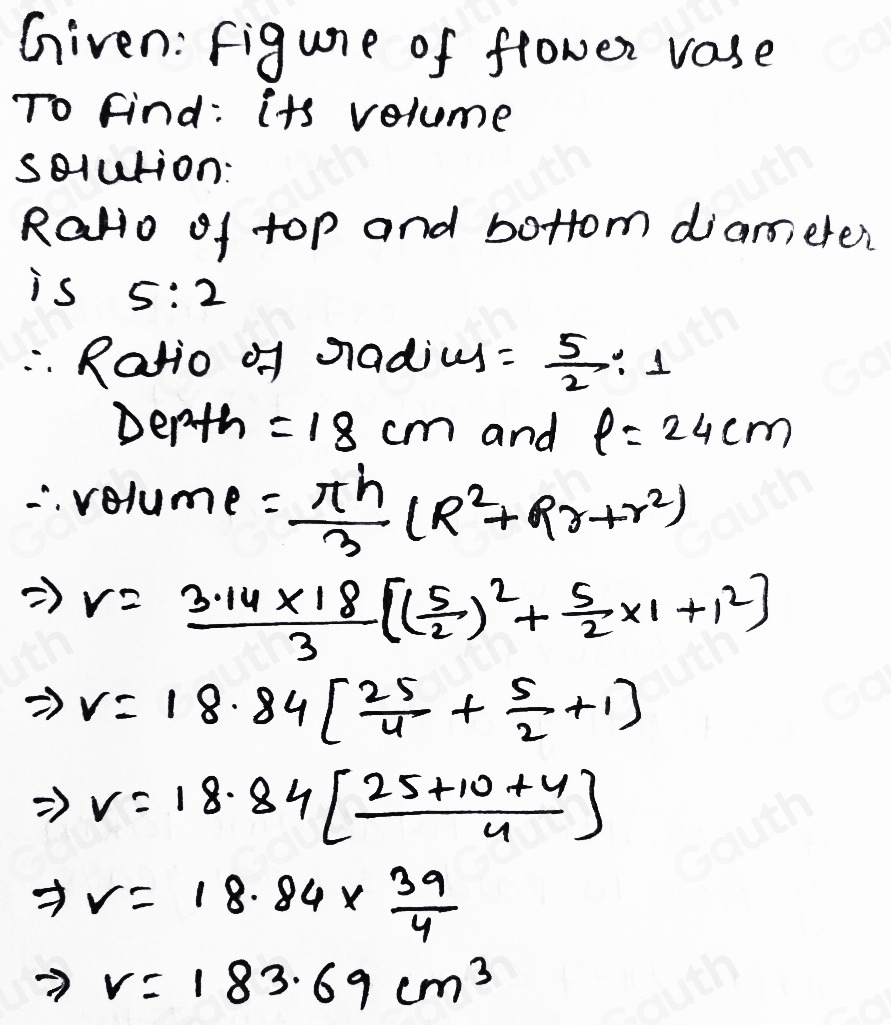 Given: Figure of flower vase
To find: its volume
Solution:
Ratio of top and bottom diameter
is 5:2
∴ Ratio of radius = 5/2 : 1
Depth = 18 cm and l = 24cm
∴ volume = πh/3 (R²+Rr+r²)
⇒ v = 3.14 × 18/3 [(5/2)² + 5/2 × 1 + 1²]
⇒ v = 18.84 [25/4 + 5/2 + 1]
⇒ v = 18.84 [25+10+4/4]
⇒ v = 18.84 × 39/4
⇒ v = 183.69 cm³